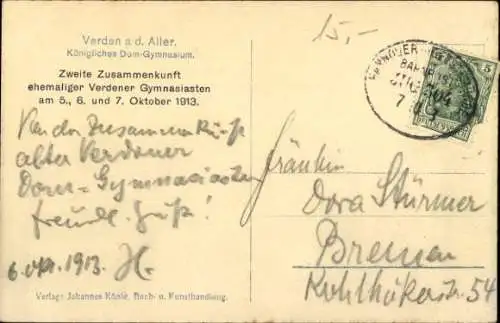 15,-
Verden a d. Aller.
Königliches Dom-Gymnasium.
Zweite Zusammenkunft
ehemaliger Verdener Gymnasiasten
am 5., 6. und 7. Oktober 1913.
Von der Zusammenkunft
alter Verdener
Dom-Gymnasiasten
freundl. Gruß!
6. Okt. 1913. H.
Fräulein
Dora Stürmer
Bremen
Kuhlhökerstr. 54
HANNOVER
BAHNPOST
5
Verlag: Johannes Buch- u. Kunsthandlung.